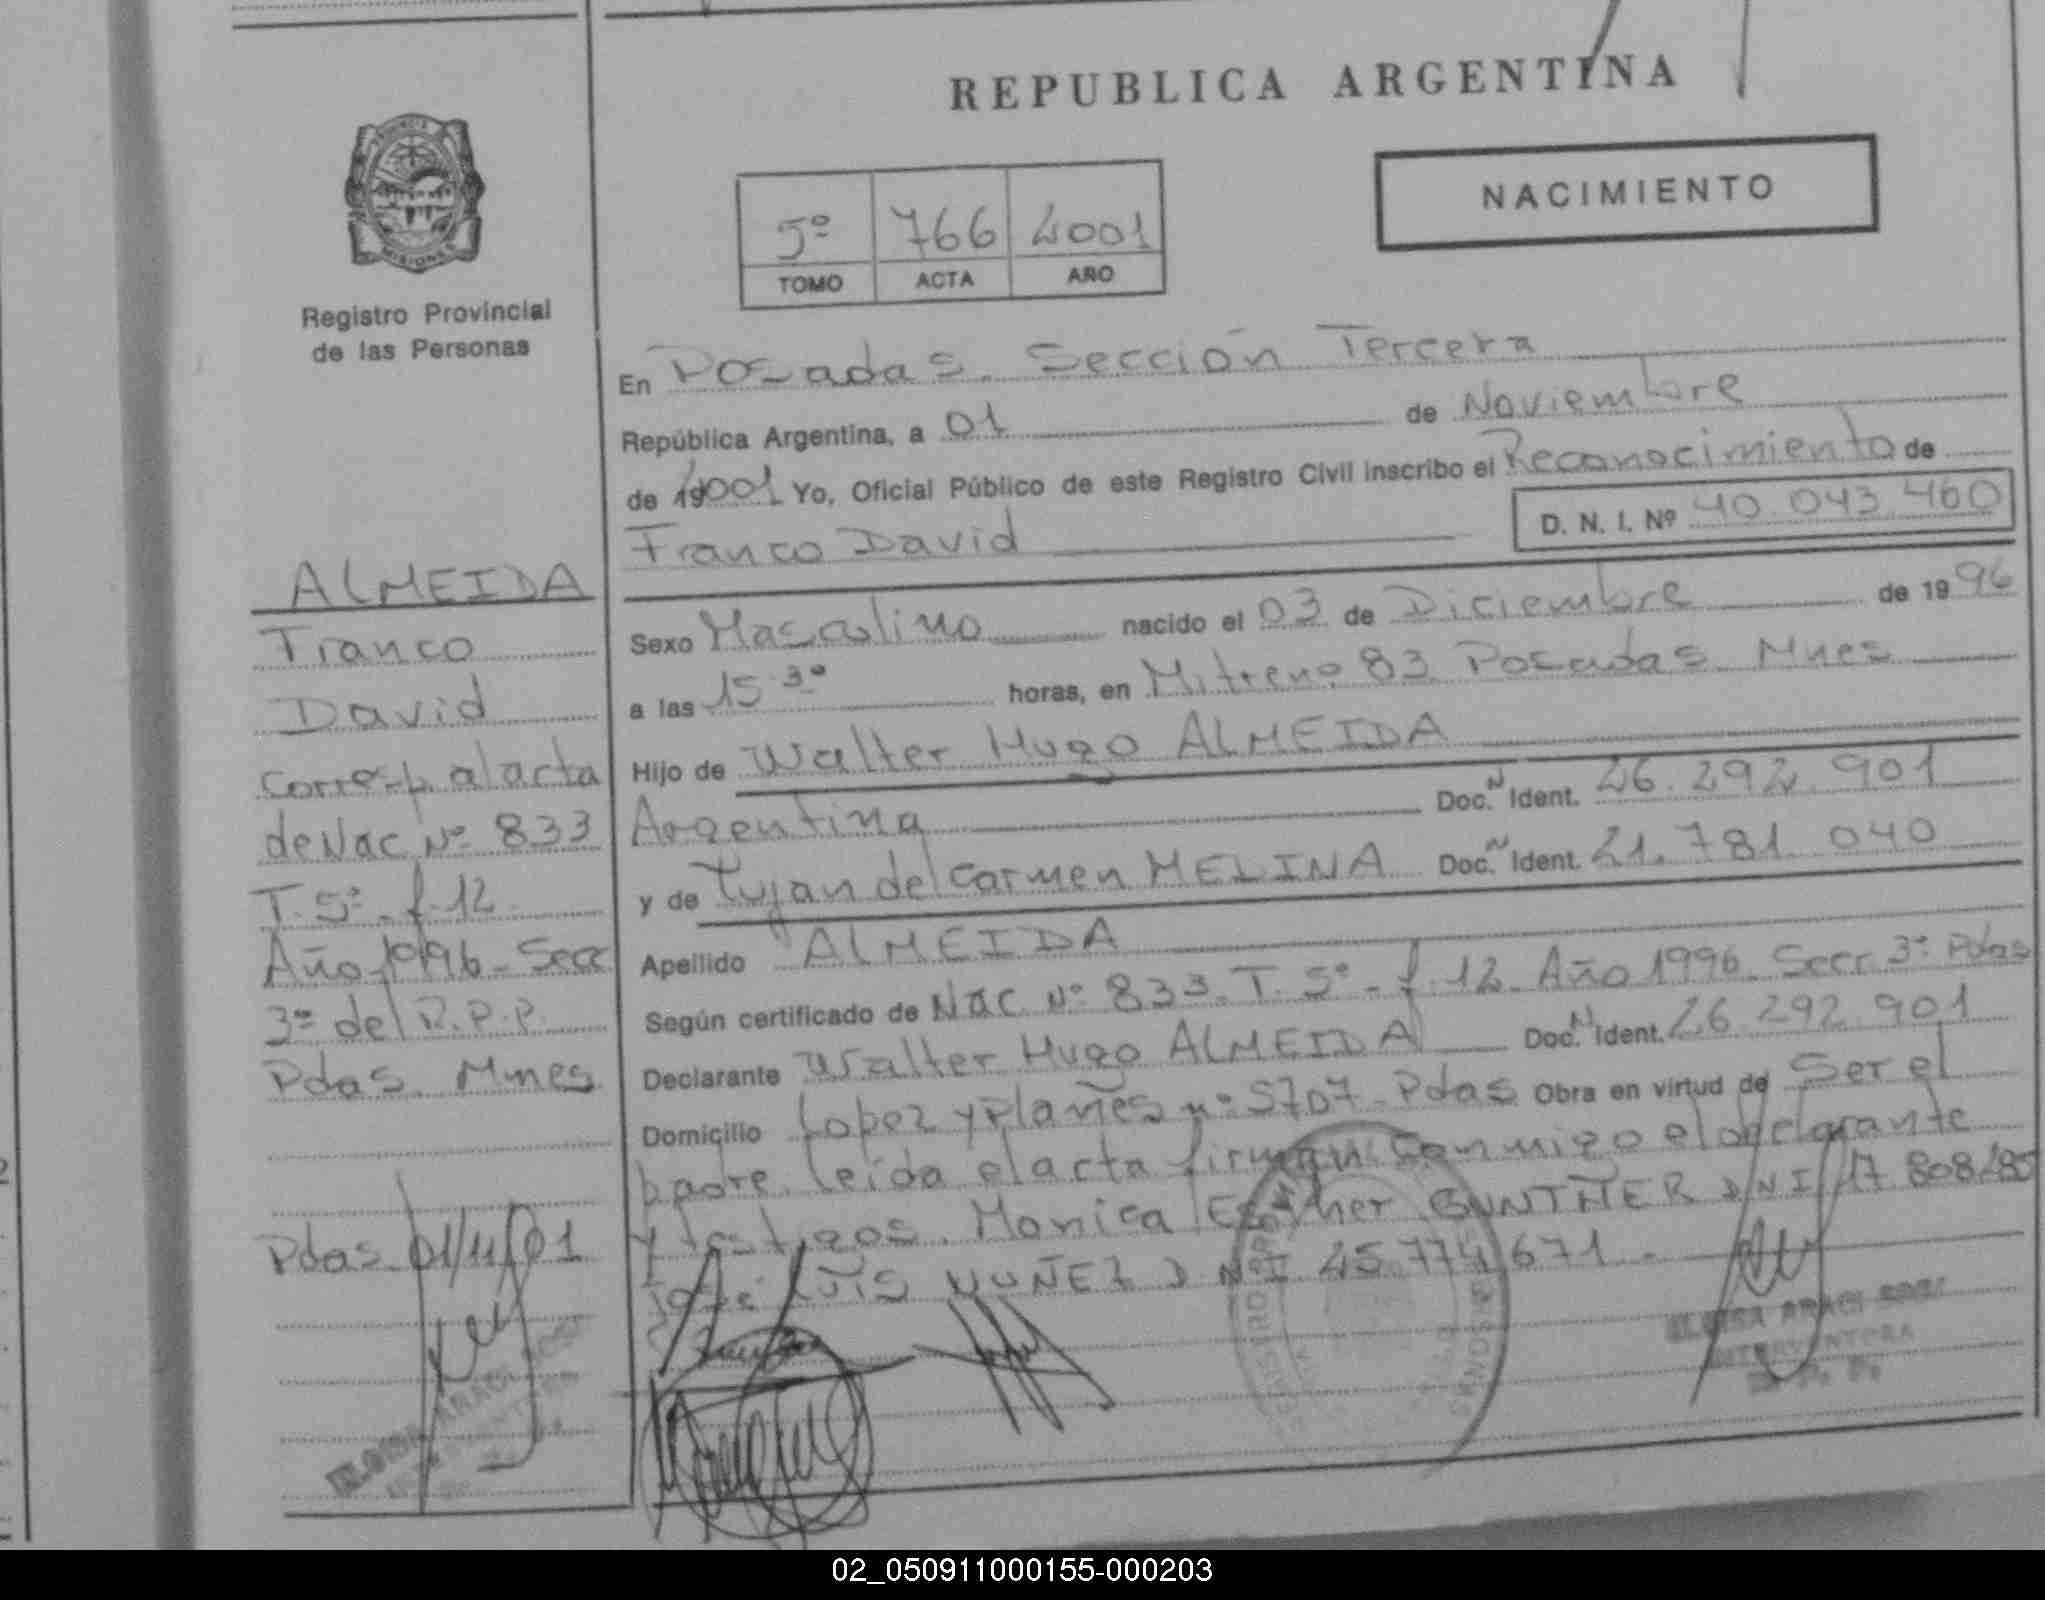 REPUBLICA ARGENTINA
NACIMIENTO
5º 766 2001
TOMO ACTA AÑO
PROVINCIA
MISIONES
Registro Provincial
de las Personas
ALMEIDA
Franco
David
Corresp. al acta
de Nac Nº 833
T. 5º - f. 12
Año 1996 - Secc
3ª del R.P.P.
Pdas. Mnes
Pdas. 01/11/01
En Posadas. Sección Tercera
República Argentina, a 01 de Noviembre
de 19 2001 Yo, Oficial Público de este Registro Civil inscribo el Reconocimiento de
Franco David D. N. I. Nº 40.043.460
Sexo Masculino nacido el 03 de Diciembre de 19 96
a las 15 30 horas, en Mitre nº 83 Posadas Mnes
Hijo de Walter Hugo ALMEIDA
Argentina Doc. N Ident. 26.292.901
y de Lujan del Carmen MELINA Doc. N Ident. 21.781.040
Apellido ALMEIDA
Según certificado de Nac Nº 833. T. 5º - f. 12. Año 1996. Secc 3ª Pdas
Declarante Walter Hugo ALMEIDA Doc. N Ident. 26.292.901
Domicilio Lopez y Planes nº 5707 - Pdas Obra en virtud de Ser el
padre. Leida el acta firman conmigo el declarante
y testigos. Monica Esther GUNTHER DNI 17 808
José Luis NUÑEZ DNI 25.774.671 -
INTERVENTORA
02_050911000155-000203